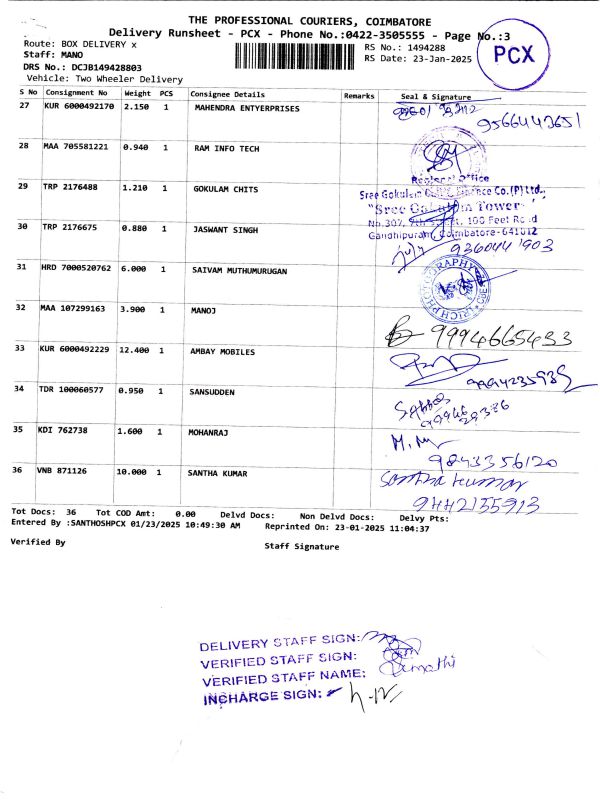 THE PROFESSIONAL COURIERS, COIMBATORE
Delivery Runsheet - PCX - Phone No.:0422-3505555 - Page No.:3
Route: BOX DELIVERY x
RS No.: 1494288
Staff: MANO
RS Date: 23-Jan-2025
PCX
DRS No.: DCJB149428803
Vehicle: Two Wheeler Delivery
S No Consignment No Weight PCS Consignee Details Remarks Seal & Signature
27 KUR 6000492170 2.150 1 MAHENDRA ENTYERPRISES
9566442651
28 MAA 705581221 0.940 1 RAM INFO TECH
Regional Office
29 TRP 2176488 1.210 1 GOKULAM CHITS
Sree Gokulam Finance Co.(P) Ltd.,
"Sree Gokulam Tower"
No.307, 7th Street, 100 Feet Road
Gandhipuram, Coimbatore-641012
30 TRP 2176675 0.880 1 JASWANT SINGH
9360441903
31 HRD 7000520762 6.000 1 SAIVAM MUTHUMURUGAN
RICH PHOTOGRAPHY
32 MAA 107299163 3.900 1 MANOJ
9994665433
33 KUR 6000492229 12.400 1 AMBAY MOBILES
34 TDR 100060577 0.950 1 SANSUDDEN
35 KDI 762738 1.600 1 MOHANRAJ
9843356120
36 VNB 871126 10.000 1 SANTHA KUMAR
Santha kumar
9442155913
Tot Docs: 36 Tot COD Amt: 0.00 Delvd Docs: Non Delvd Docs: Delvy Pts:
Entered By :SANTHOSHPCX 01/23/2025 10:49:30 AM Reprinted On: 23-01-2025 11:04:37
Verified By Staff Signature
DELIVERY STAFF SIGN:
VERIFIED STAFF SIGN:
VERIFIED STAFF NAME:
INCHARGE SIGN: